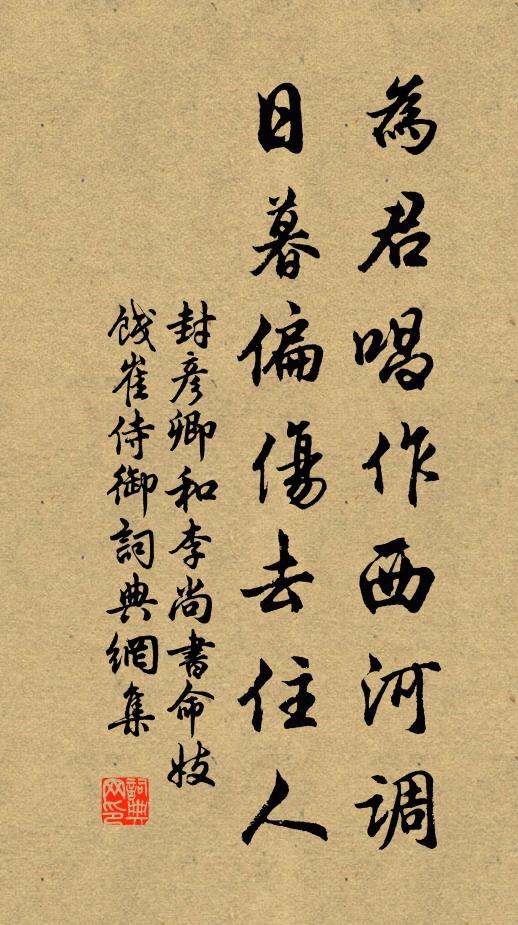 為君唱作西河調
日暮偏傷去住人
封彥卿和李尚書命妓
餞崔侍御詞典網集
詞典
网印